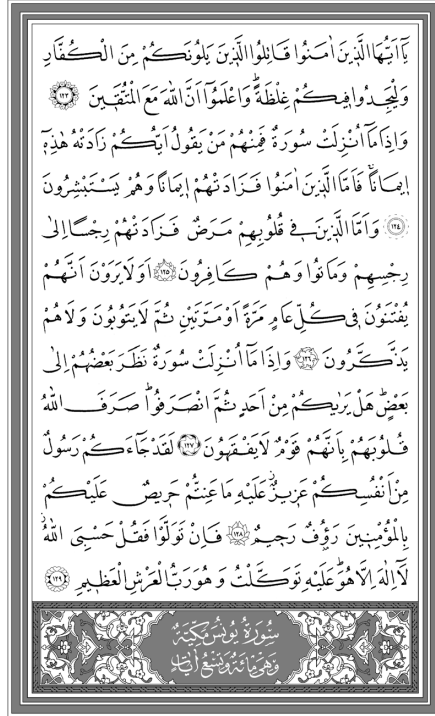 يَٓا اَيُّهَا الَّذٖينَ اٰمَنُوا قَاتِلُوا الَّذٖينَ يَلُونَكُمْ مِنَ الْكُفَّارِ
وَلْيَجِدُوا فٖيكُمْ غِلْظَةًؕ وَاعْلَمُٓوا اَنَّ اللّٰهَ مَعَ الْمُتَّقٖينَ ﴿١٢٣﴾
وَاِذَا مَٓا اُنْزِلَتْ سُورَةٌ فَمِنْهُمْ مَنْ يَقُولُ اَيُّكُمْ زَادَتْهُ هٰذِهٖٓ
اٖيمَاناًۚ فَاَمَّا الَّذٖينَ اٰمَنُوا فَزَادَتْهُمْ اٖيمَاناً وَهُمْ يَسْتَبْشِرُونَ
﴿١٢٤﴾ وَاَمَّا الَّذٖينَ فٖي قُلُوبِهِمْ مَرَضٌ فَزَادَتْهُمْ رِجْساً اِلٰى
رِجْسِهِمْ وَمَاتُوا وَهُمْ كَافِرُونَ ﴿١٢٥﴾ اَوَلَا يَرَوْنَ اَنَّهُمْ
يُفْتَنُونَ فٖي كُلِّ عَامٍ مَرَّةً اَوْ مَرَّتَيْنِ ثُمَّ لَا يَتُوبُونَ وَلَا هُمْ
يَذَّكَّرُونَ ﴿١٢٦﴾ وَاِذَا مَٓا اُنْزِلَتْ سُورَةٌ نَظَرَ بَعْضُهُمْ اِلٰى
بَعْضٍؕ هَلْ يَرٰيكُمْ مِنْ اَحَدٍ ثُمَّ انْصَرَفُواؕ صَرَفَ اللّٰهُ
قُلُوبَهُمْ بِاَنَّهُمْ قَوْمٌ لَا يَفْقَهُونَ ﴿١٢٧﴾ لَقَدْ جَٓاءَكُمْ رَسُولٌ
مِنْ اَنْفُسِكُمْ عَزٖيزٌ عَلَيْهِ مَا عَنِتُّمْ حَرٖيصٌ عَلَيْكُمْ
بِالْمُؤْمِنٖينَ رَؤُفٌ رَحٖيمٌ ﴿١٢٨﴾ فَاِنْ تَوَلَّوْا فَقُلْ حَسْبِيَ اللّٰهُؗ
لَٓا اِلٰهَ اِلَّا هُوَؕ عَلَيْهِ تَوَكَّلْتُ وَهُوَ رَبُّ الْعَرْشِ الْعَظٖيمِ ﴿١٢٩﴾
سُورَةُ يُونُسَ مَكِّيَّةٌ
وَهِيَ مِائَةٌ وَتِسْعُ اٰيَاتٍ